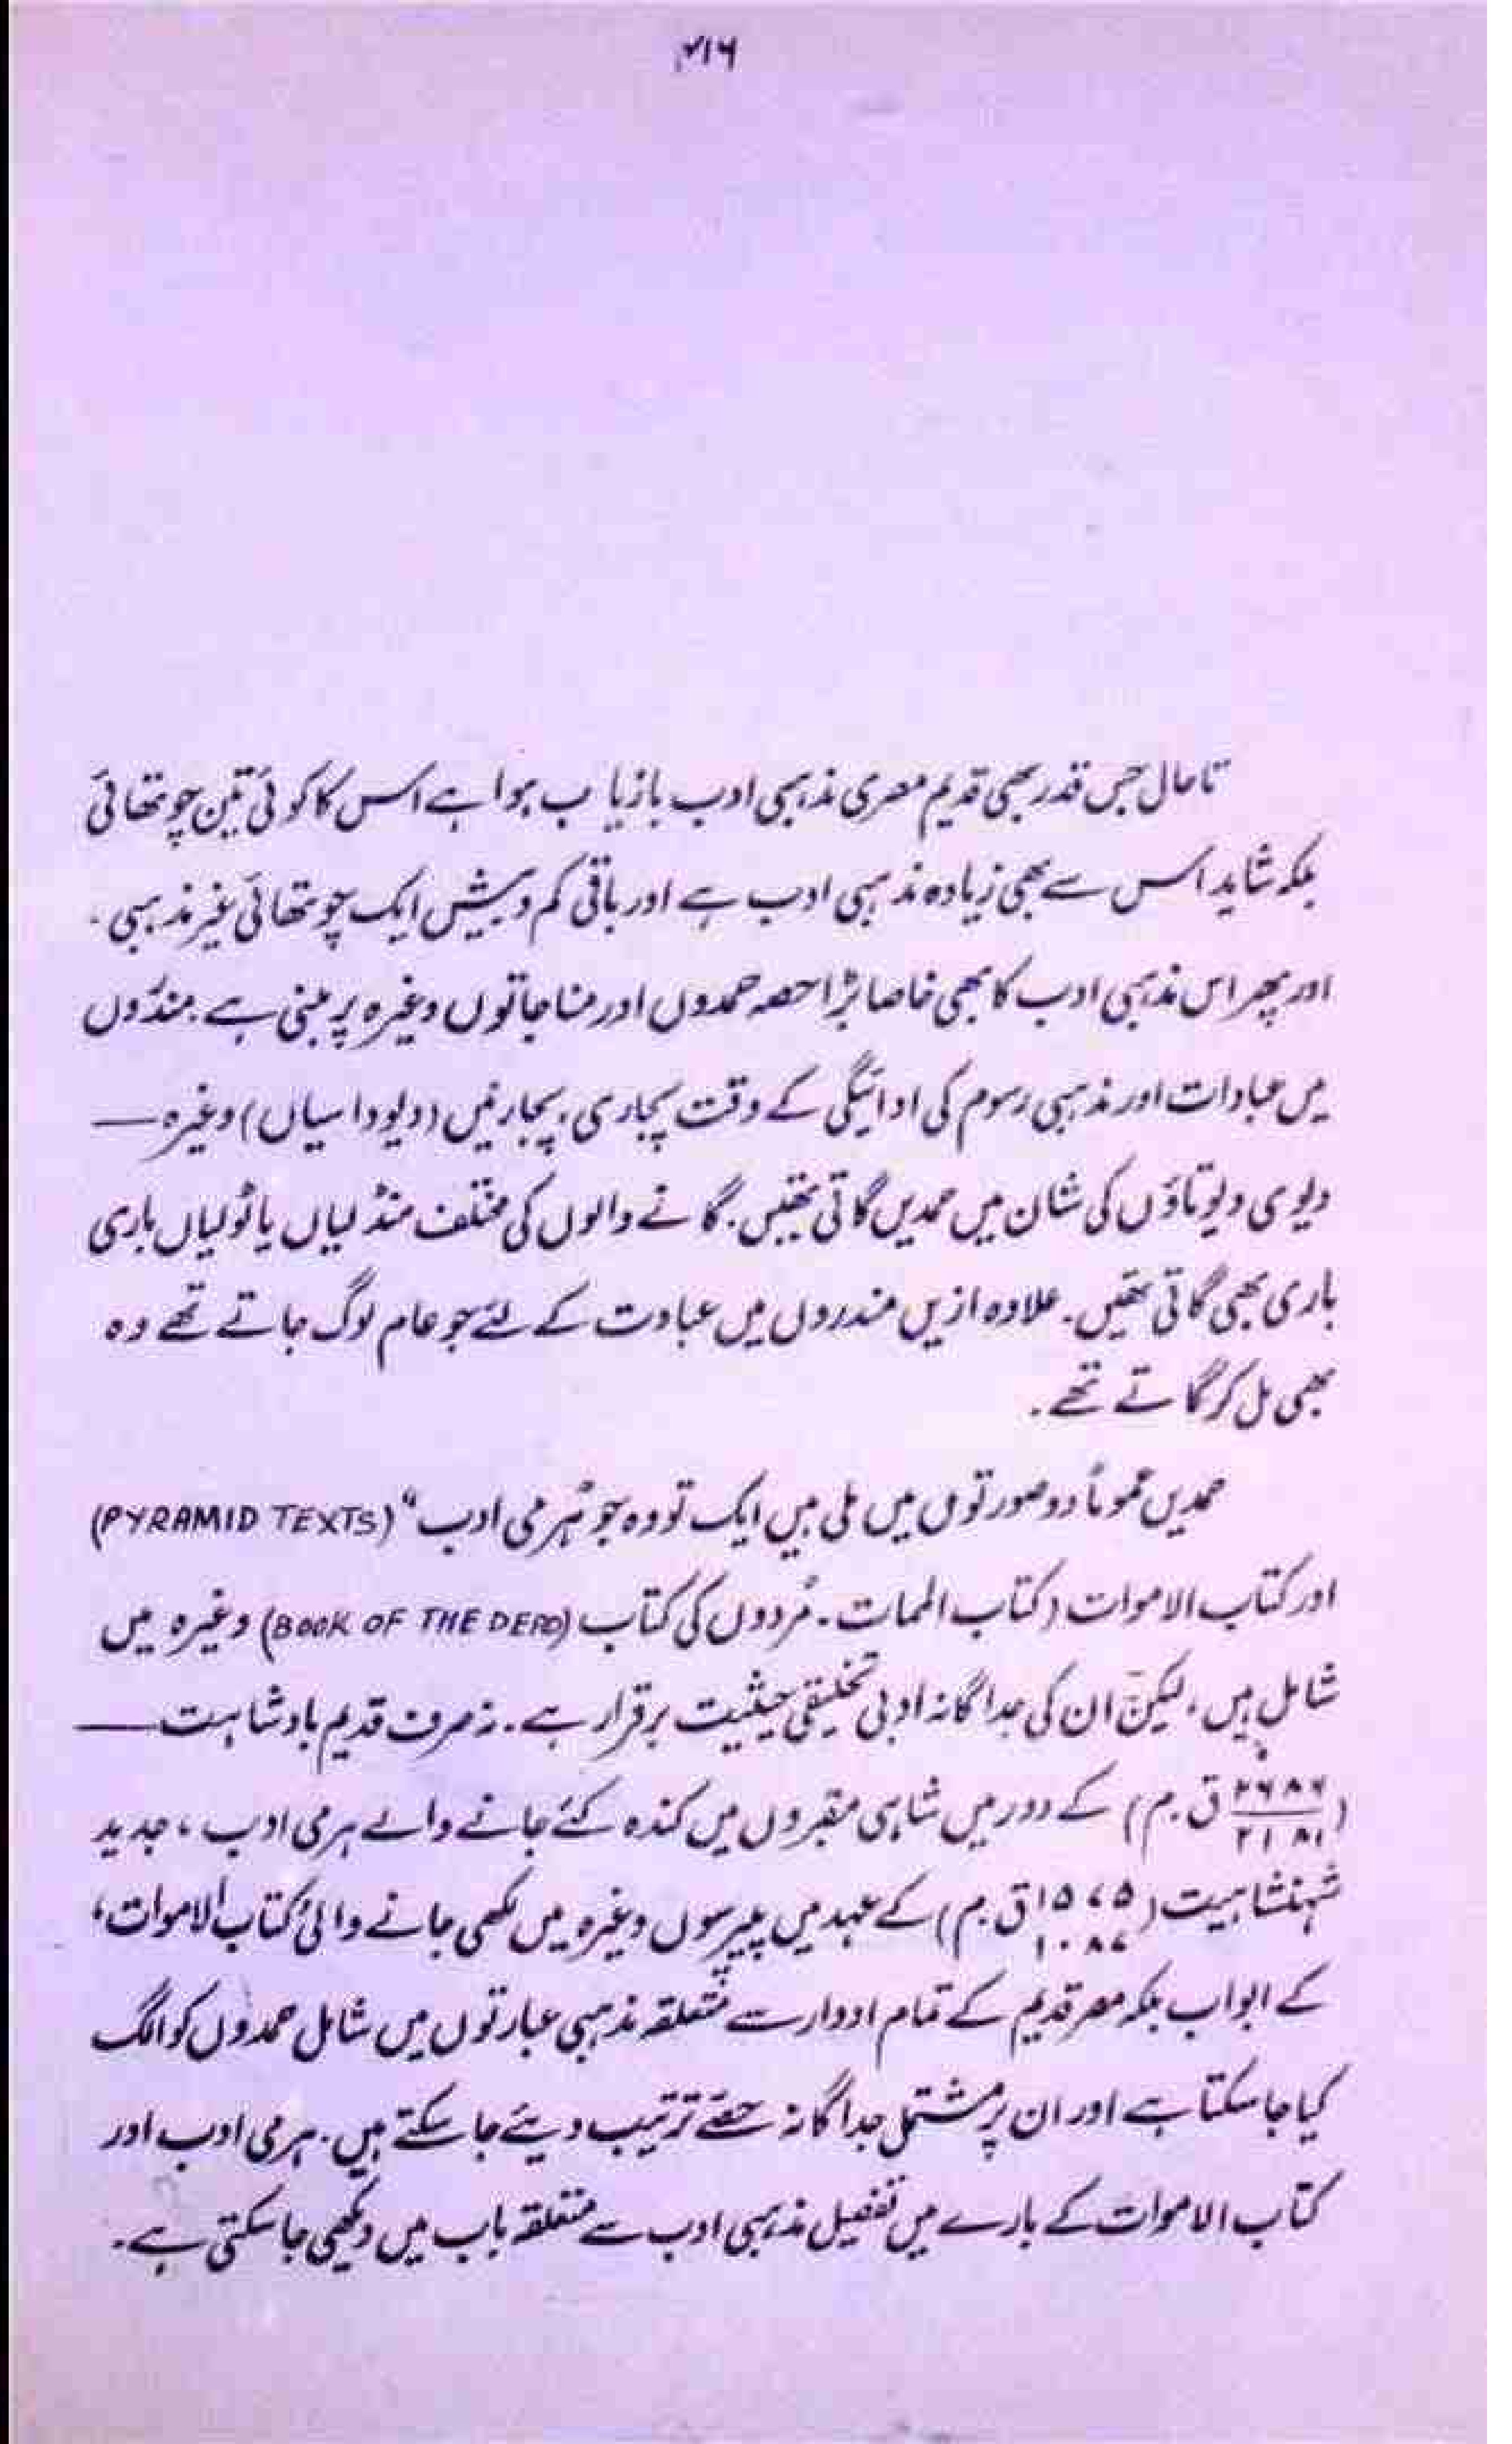 ۴۱۶
تاحال جس قدر بھی قدیم مصری مذہبی ادب بازیاب ہوا ہے اس کا کوئی تین چوتھائی
بلکہ شاید اس سے بھی زیادہ مذہبی ادب ہے اور باقی کم و بیش ایک چوتھائی غیر مذہبی۔
اور پھر اس مذہبی ادب کا بھی خاصا بڑا حصہ حمدوں اور مناجاتوں وغیرہ پر مبنی ہے۔ مندروں
میں عبادات اور مذہبی رسوم کی ادائیگی کے وقت پجاری، پجارنیں (دیوداسیاں) وغیرہ —
دیوی دیوتاؤں کی شان میں حمدیں گاتی تھیں۔ گانے والوں کی مختلف منڈلیاں یا ٹولیاں باری
باری بھی گاتی تھیں۔ علاوہ ازیں مندروں میں عبادت کے لئے جو عام لوگ جاتے تھے وہ
بھی مل کر گاتے تھے۔
حمدیں عموماً دو صورتوں میں ملی ہیں ایک تو وہ جو "ہرمی ادب" (PYRAMID TEXTS)
اور کتاب الاموات (کتاب الممات۔ مُردوں کی کتاب (BOOK OF THE DEAD) وغیرہ میں
شامل ہیں، لیکن ان کی جداگانہ ادبی تخلیقی حیثیت برقرار ہے۔ نہ صرف قدیم بادشاہت —
(۲۶۸۶/۲۱۸۱ ق۔م) کے دور میں شاہی مقبروں میں کندہ کئے جانے والے ہرمی ادب، جدید
شہنشاہیت (۱۵۷۵/۱۰۸۷ ق۔م) کے عہد میں پیپرسوں وغیرہ میں لکھی جانے والی کتاب الاموات،
کے ابواب بلکہ مصر قدیم کے تمام ادوار سے متعلقہ مذہبی عبارتوں میں شامل حمدوں کو الگ
کیا جا سکتا ہے اور ان پر مشتمل جداگانہ حصے ترتیب دیئے جا سکتے ہیں۔ ہرمی ادب اور
کتاب الاموات کے بارے میں تفصیل مذہبی ادب سے متعلقہ باب میں دیکھی جا سکتی ہے۔